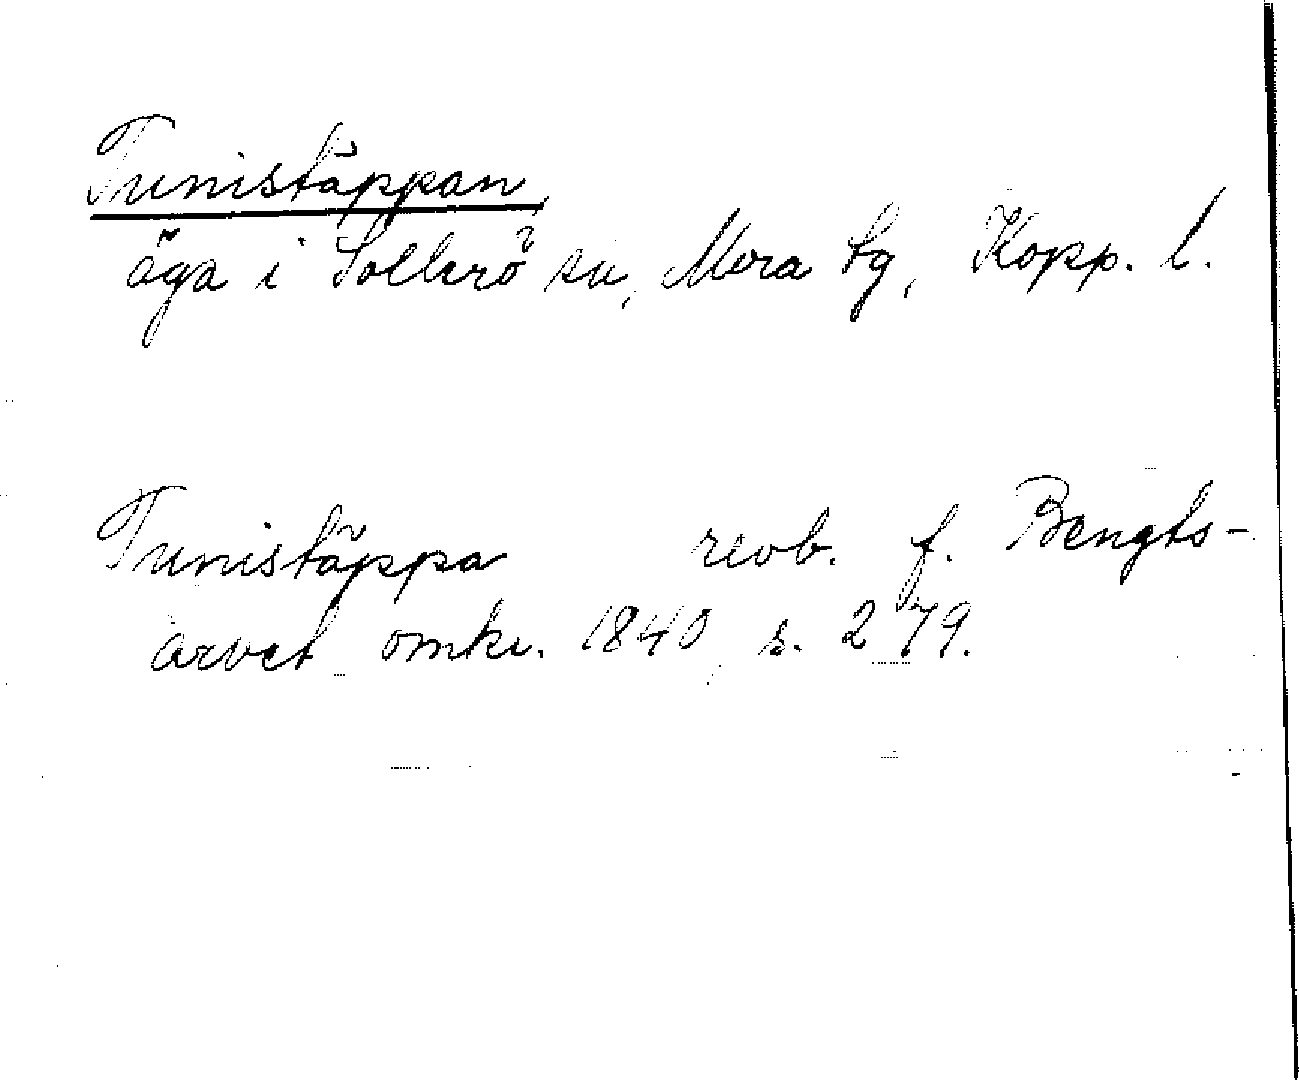 Tunistäppan,
äga i Sollerö sn, Mora tg, Kopp. l.
Tunistäppa revb. f. Bengts-
arvet omkr. 1840, s. 279.